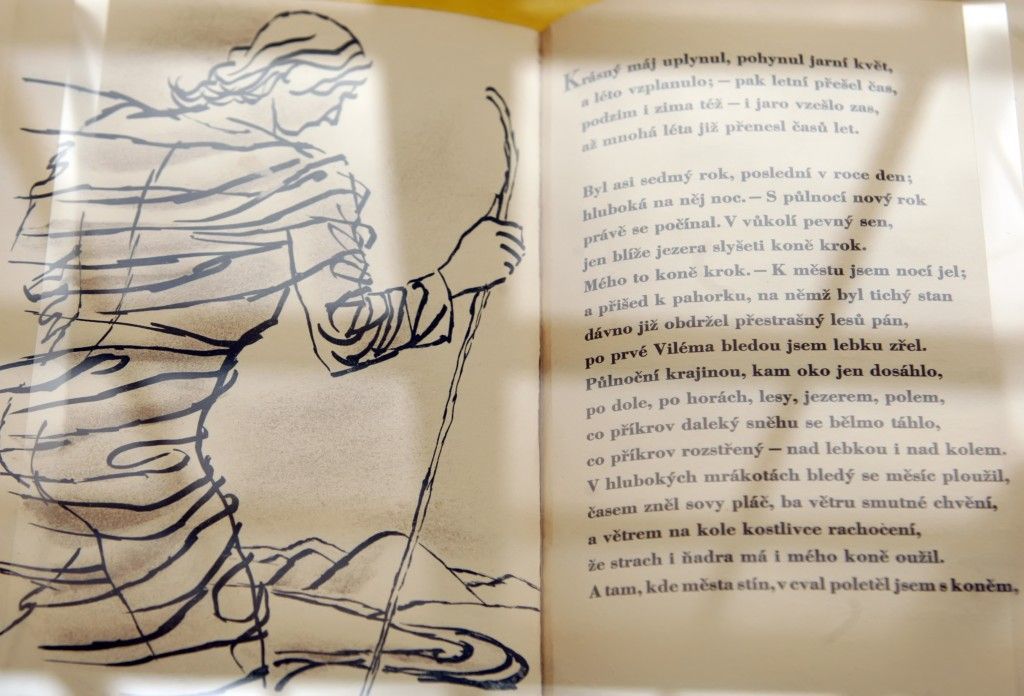 Krásný máj uplynul, pohynul jarní květ,
a léto vzplanulo; — pak letní přešel čas,
podzim i zima též — i jaro vzešlo zas,
až mnohá léta již přenesl časů let.
Byl asi sedmý rok, poslední v roce den;
hluboká na něj noc. — S půlnocí nový rok
právě se počínal. V vůkolí pevný sen,
jen blíže jezera slyšeti koně krok.
Mého to koně krok. — K městu jsem nocí jel;
a přišed k pahorku, na němž byl tichý stan
dávno již obdržel přestrašný lesů pán,
po prvé Viléma bledou jsem lebku zřel.
Půlnoční krajinou, kam oko jen dosáhlo,
po dole, po horách, lesy, jezerem, polem,
co příkrov daleký sněhu se bělmo táhlo,
co příkrov rozstřený — nad lebkou i nad kolem.
V hlubokých mrákotách bledý se měsíc ploužil,
časem zněl sovy pláč, ba větru smutné chvění,
a větrem na kole kostlivce rachocení,
že strach i ňadra má i mého koně oužil.
A tam, kde města stín, v cval poletěl jsem s koněm,